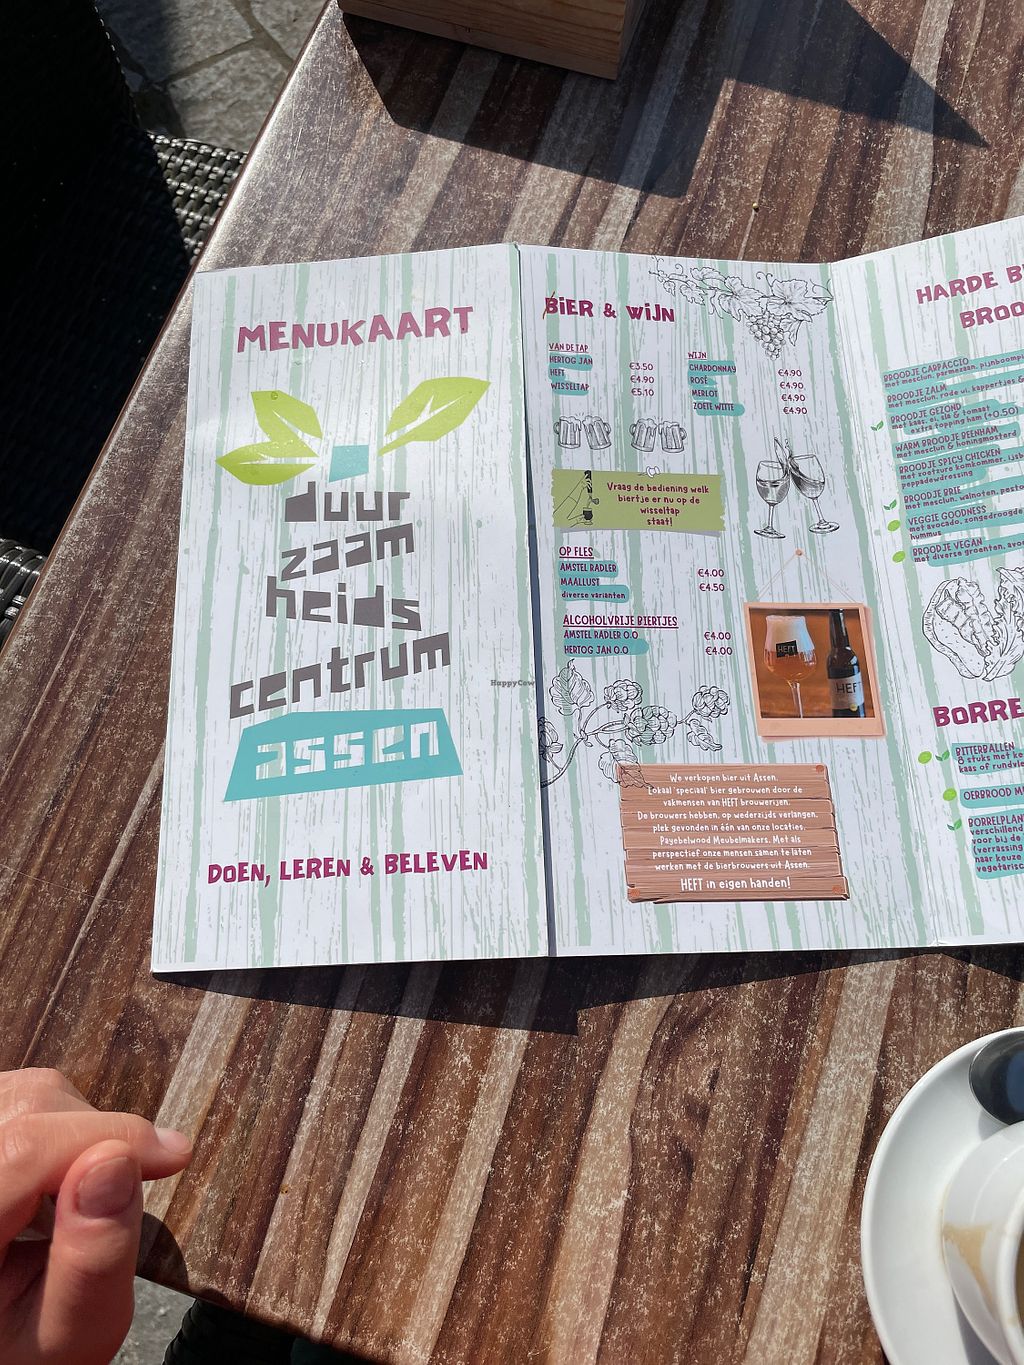 MENUKAART
duur
zaam
heids
centrum
assen
DOEN, LEREN & BELEVEN
BIER & WIJN
VAN DE TAP
HERTOG JAN €3.50
HEFT €4.90
WISSELTAP €5.10
WIJN
CHARDONNAY €4.90
ROSÉ €4.90
MERLOT €4.90
ZOETE WITTE €4.90
Vraag de bediening welk
biertje er nu op de
wisseltap
staat!
OP FLES
AMSTEL RADLER €4.00
MAALLUST €4.50
diverse varianten
ALCOHOLVRIJE BIERTJES
AMSTEL RADLER 0.0 €4.00
HERTOG JAN 0.0 €4.00
HEFT
HEFT
We verkopen bier uit Assen.
Lokaal 'speciaal' bier gebrouwen door de
vakmensen van HEFT brouwerijen.
De brouwers hebben, op wederzijds verlangen,
plek gevonden in één van onze locaties.
Payebelwood Meubelmakers. Met als
perspectief onze mensen samen te laten
werken met de bierbrouwers uit Assen.
HEFT in eigen handen!
HARDE B
BROO
BROODJE CARPACCIO
met mesclun, parmezaan, pijnboompi
BROODJE ZALM
met mesclun, rode ui, kappertjes &
BROODJE GEZOND
met kaas, ei, sla & tomaat
extra topping ham (+0.50)
WARM BROODJE BEENHAM
met mesclun & honingmosterd
BROODJE SPICY CHICKEN
met zoetzure komkommer, ijsb
peppadewdressing
BROODJE BRIE
met mesclun, walnoten, pesto
VEGGIE GOODNESS
met avocado, zongedroogde
hummus
BROODJE VEGAN
met diverse groenten, avo
BORRE
BITTERBALLEN
8 stuks met ke
kaas of rundvle
OERBROOD M
BORRELPLAN
verschillend
voor bij de
(verrassing
naar keuze
vegetarisc
HappyCow